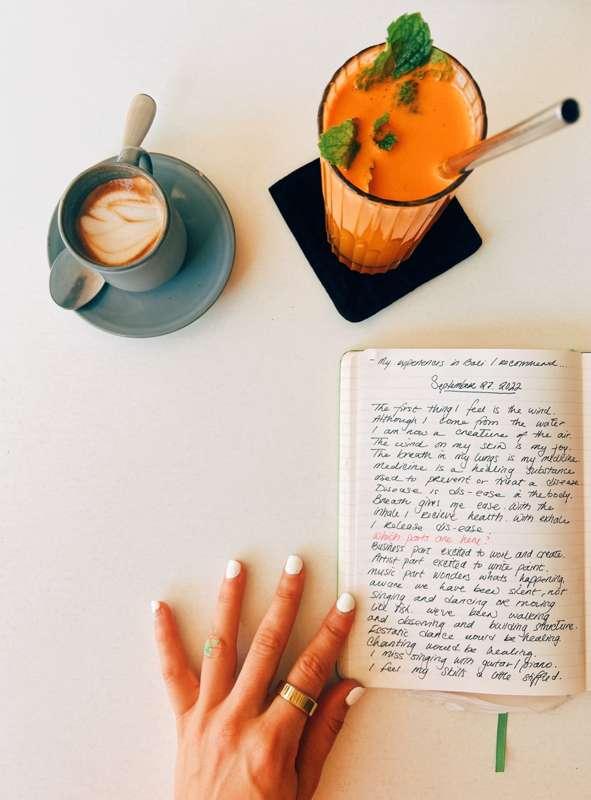 - My experiences in Bali I recommend...
September 27. 2022
The first thing I feel is the wind.
Although I come from the water
I am now a creature of the air.
The wind on my skin is my joy.
The breath in my lungs is my medicine
medicine is a healing substance
used to prevent or treat a disease
Disease is dis-ease in the body.
Breath gives me ease with the
inhale I recieve health. With exhale
I release dis-ease.
Which parts are here?
Business part excited to work and create.
Artist part excited to write paint.
music part wonders whats happening,
aware we have been silent, not
singing and dancing or moving
like fish. we've been walking
and observing and building structure.
Ecstatic dance would be healing.
Chanting would be healing.
I miss singing with guitar/piano.
I feel my skills a little stifled.